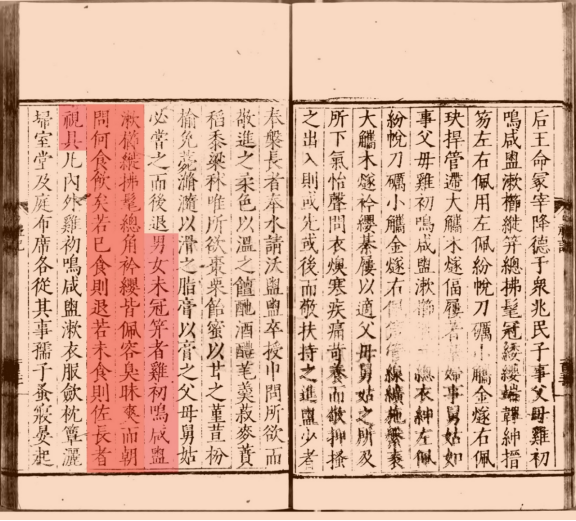 后王命冢宰降德于衆兆民子事父母雞初
鳴咸盥漱櫛縰笄總拂髦冠緌纓端韠紳搢
笏左右佩用左佩紛帨刀礪小觿金燧右佩
玦捍管遰大觿木燧偪屨著婦事舅姑如
事父母雞初鳴咸盥漱總衣紳左佩
紛帨刀礪小觿金燧右佩線纊施縏袠
大觿木燧衿纓綦屨以適父母舅姑之所及
所下氣怡聲問衣燠寒疾痛苛癢而敬抑搔
之出入則或先或後而敬扶持之進盥少者
奉槃長者奉水請沃盥盥卒授巾問所欲而
敬進之柔色以溫之饘酏酒醴芼羹菽麥蕡
稻黍粱秫唯所欲棗栗飴蜜以甘之菫荁枌
榆免薧滫瀡以滑之脂膏以膏之父母舅姑
必嘗之而後退男女未冠笄者雞初鳴咸盥
漱櫛縰拂髦總角衿纓皆佩容臭昧爽而朝
問何食飲矣若已食則退若未食則佐長者
視具凡內外雞初鳴咸盥漱衣服斂枕簟灑
掃室堂及庭布席各從其事孺子蚤寢晏起